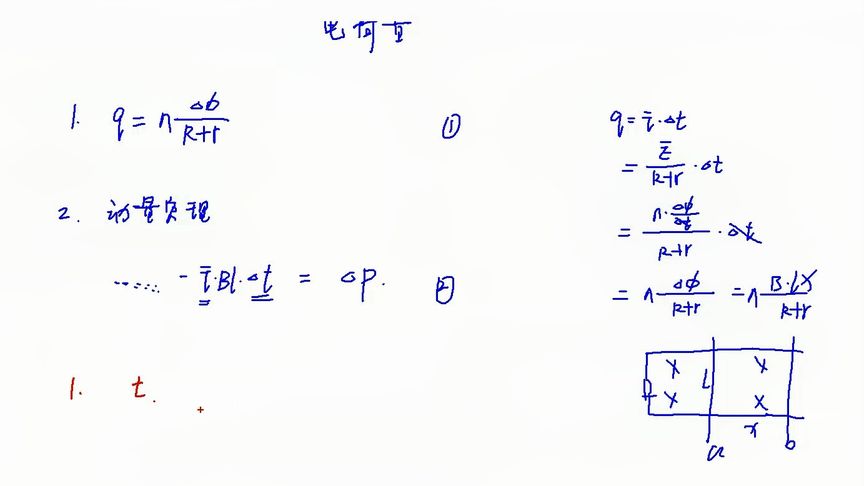 电荷量
1. q = n ΔΦ/(R+r) ①
2. 动量定理
...... - Ī·Bl·Δt = ΔP. ②
1. t.
q = Ī·Δt
= Ē/(R+r) ·Δt
= n·ΔΦ/Δt/(R+r) ·Δt
= n ΔΦ/(R+r) = n B·LX/(R+r)
× ×
L
× ×
R
x
a b